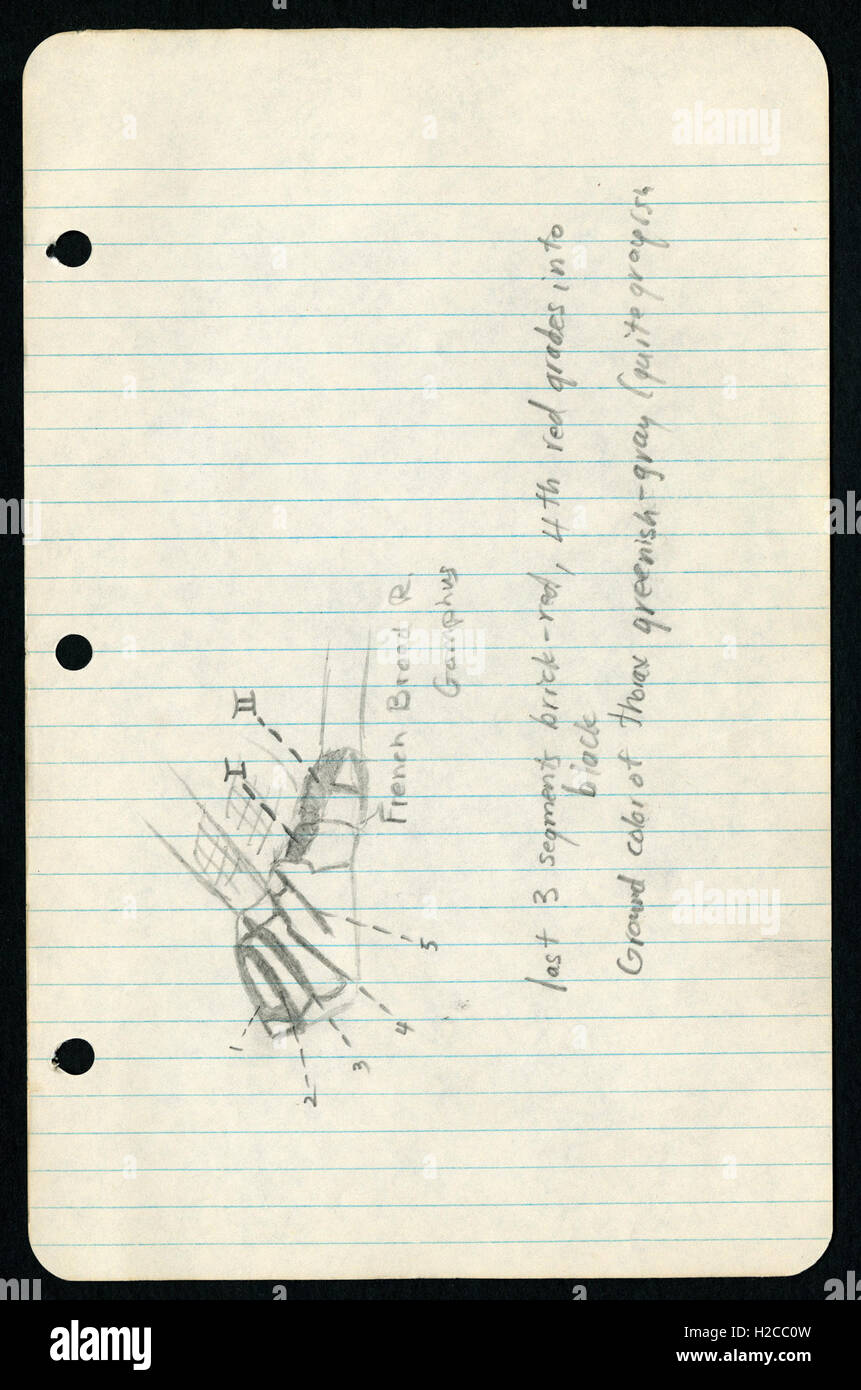 I
II
1
2
3
4
5
French Broad R.
Gomphus
last 3 segments brick-red, 4th red grades into
black
Ground color of thorax greenish-gray (quite grayish
alamy
a
a
a
a
alamy
Image ID: H2CC0W
www.alamy.com